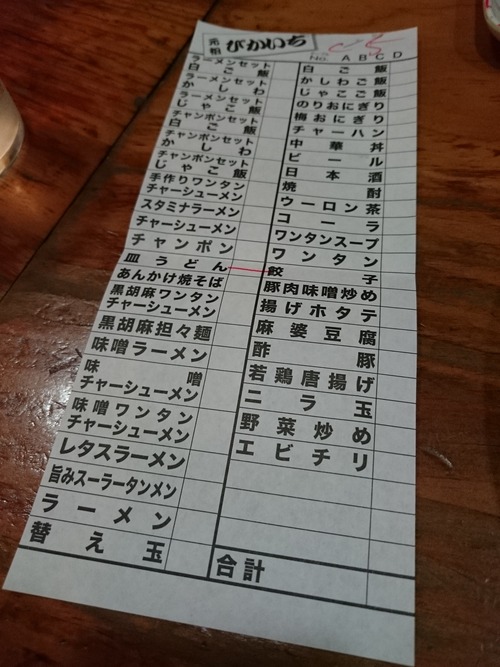 元祖 ぴかいち
No. A B C D
ラーメンセット
白ご飯
ラーメンセット
かしわ
ラーメンセット
じゃこ飯
チャンポンセット
白ご飯
チャンポンセット
かしわ
チャンポンセット
じゃこ飯
手作りワンタン
チャーシューメン
スタミナラーメン
チャーシューメン
チャンポン
皿うどん
あんかけ焼そば
黒胡麻ワンタン
チャーシューメン
黒胡麻担々麺
味噌ラーメン
味噌
チャーシューメン
味噌ワンタン
チャーシューメン
レタスラーメン
旨みスーラータンメン
ラーメン
替え玉
白ご飯
かしわご飯
じゃこご飯
のりおにぎり
梅おにぎり
チャーハン
中華丼
ビール
日本酒
焼酎
ウーロン茶
コーラ
ワンタンスープ
ワンタン
餃子
豚肉味噌炒め
揚げホタテ
麻婆豆腐
酢豚
若鶏唐揚げ
ニラ玉
野菜炒め
エビチリ
合計